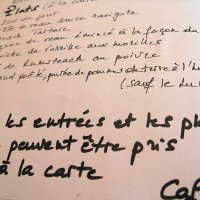 Plats (à la ca
sauce ravigote
Tartare
de veau à la façon du
de volaille aux morilles
de rumsteack au poivre
poêlé, purée de pommes de terre à l'hu
(sauf le du
les entrées et les pl
peuvent être pris
à la carte
Caf